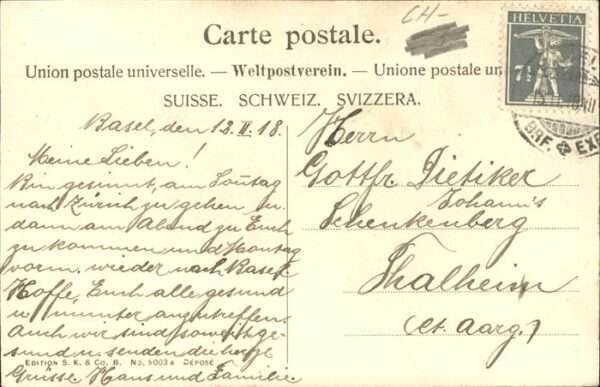 CH-
Carte postale.
Union postale universelle. — Weltpostverein. — Unione postale un
SUISSE. SCHWEIZ. SVIZZERA.
HELVETIA
7½
BRF. EXP
Basel, den 12. II. 18.
Meine Lieben!
Bin gesinnt, am Sonntag
nach Zürich zu gehen u.
dann am Abend zu Euch
zu kommen und Montag
vorm. wieder nach Basel.
Hoffe, Euch alle gesund
u. munter anzutreffen.
Auch wir sind soweit ge-
sund u. senden die herzl.
Grüsse Hans und Familie
Herrn
Gottfr. Dietiker
Johann's
Schenkenberg
Thalheim
(Ct. Aarg.)
EDITION S. K. & CO. B. No. 5003 A DÉPOSÉ